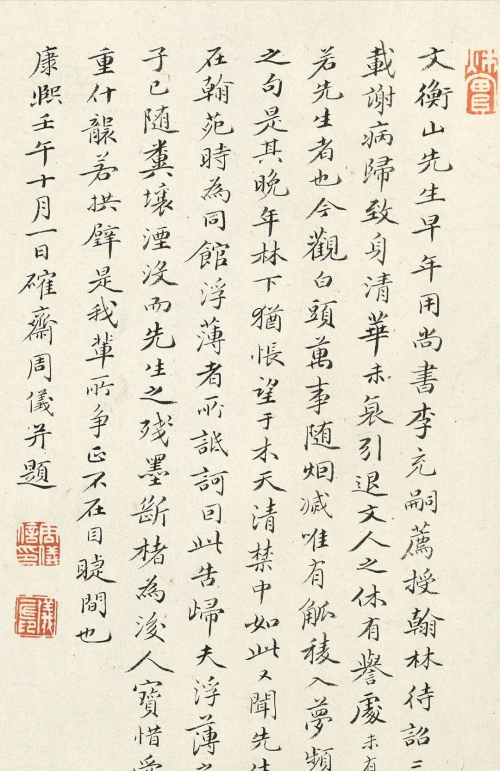 文衡山先生早年用尚書李充嗣薦授翰林待詔三
載謝病歸致身清華未衰引退文人之休有譽處未有
若先生者也今觀白頭萬事随烟滅唯有觚稜入夢頻
之句是其晚年林下猶悵望于木天清禁中如此又聞先
在翰苑時為同館浮薄者所詆訶囙此告歸夫浮薄之
子已随糞壤湮沒而先生之殘墨斷楮為後人寳惜愛
重什襲若拱璧是我輩所争正不在目睫間也
康熙壬午十月一日確齋周儀并題